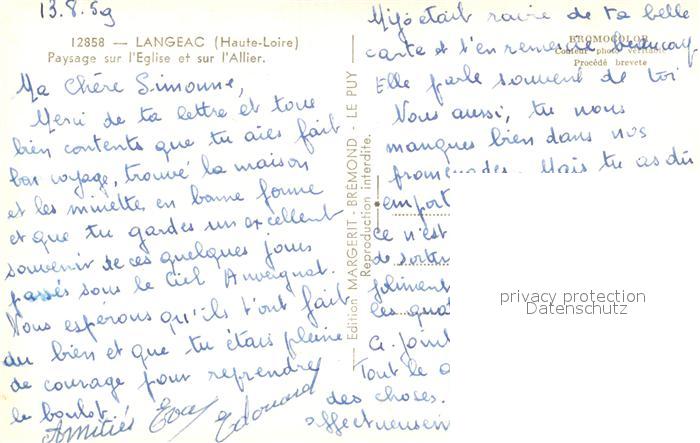 13.8.59
12858 — LANGEAC (Haute-Loire)
Paysage sur l'Eglise et sur l'Allier.
Ma Chère Simonne,
Merci de ta lettre et tous
bien contents que tu aies fait
bon voyage, trouvé la maison
et les minettes en bonne forme
et que tu gardes un excellent
souvenir de ces quelques jours
passés sous le Ciel Auvergnat.
Nous espérons qu'ils t'ont fait
du bien et que tu étais pleine
de courage pour reprendre
le boulot.
Amitiés Edouard
Edition MARGERIT - BRÉMOND - LE PUY
Reproduction interdite.
BROMOCOLOR
Couleur photo véritable
Procédé breveté
était ravie de ta belle
carte et t'en remercie beaucoup
Elle parle souvent de toi
Vous aussi, tu nous
manques bien dans nos
promenades. Mais tu as dû
emport
ce n'est
de sortes
joliment
les qua
Tout le
des choses.
affectueusem
privacy protection
Datenschutz